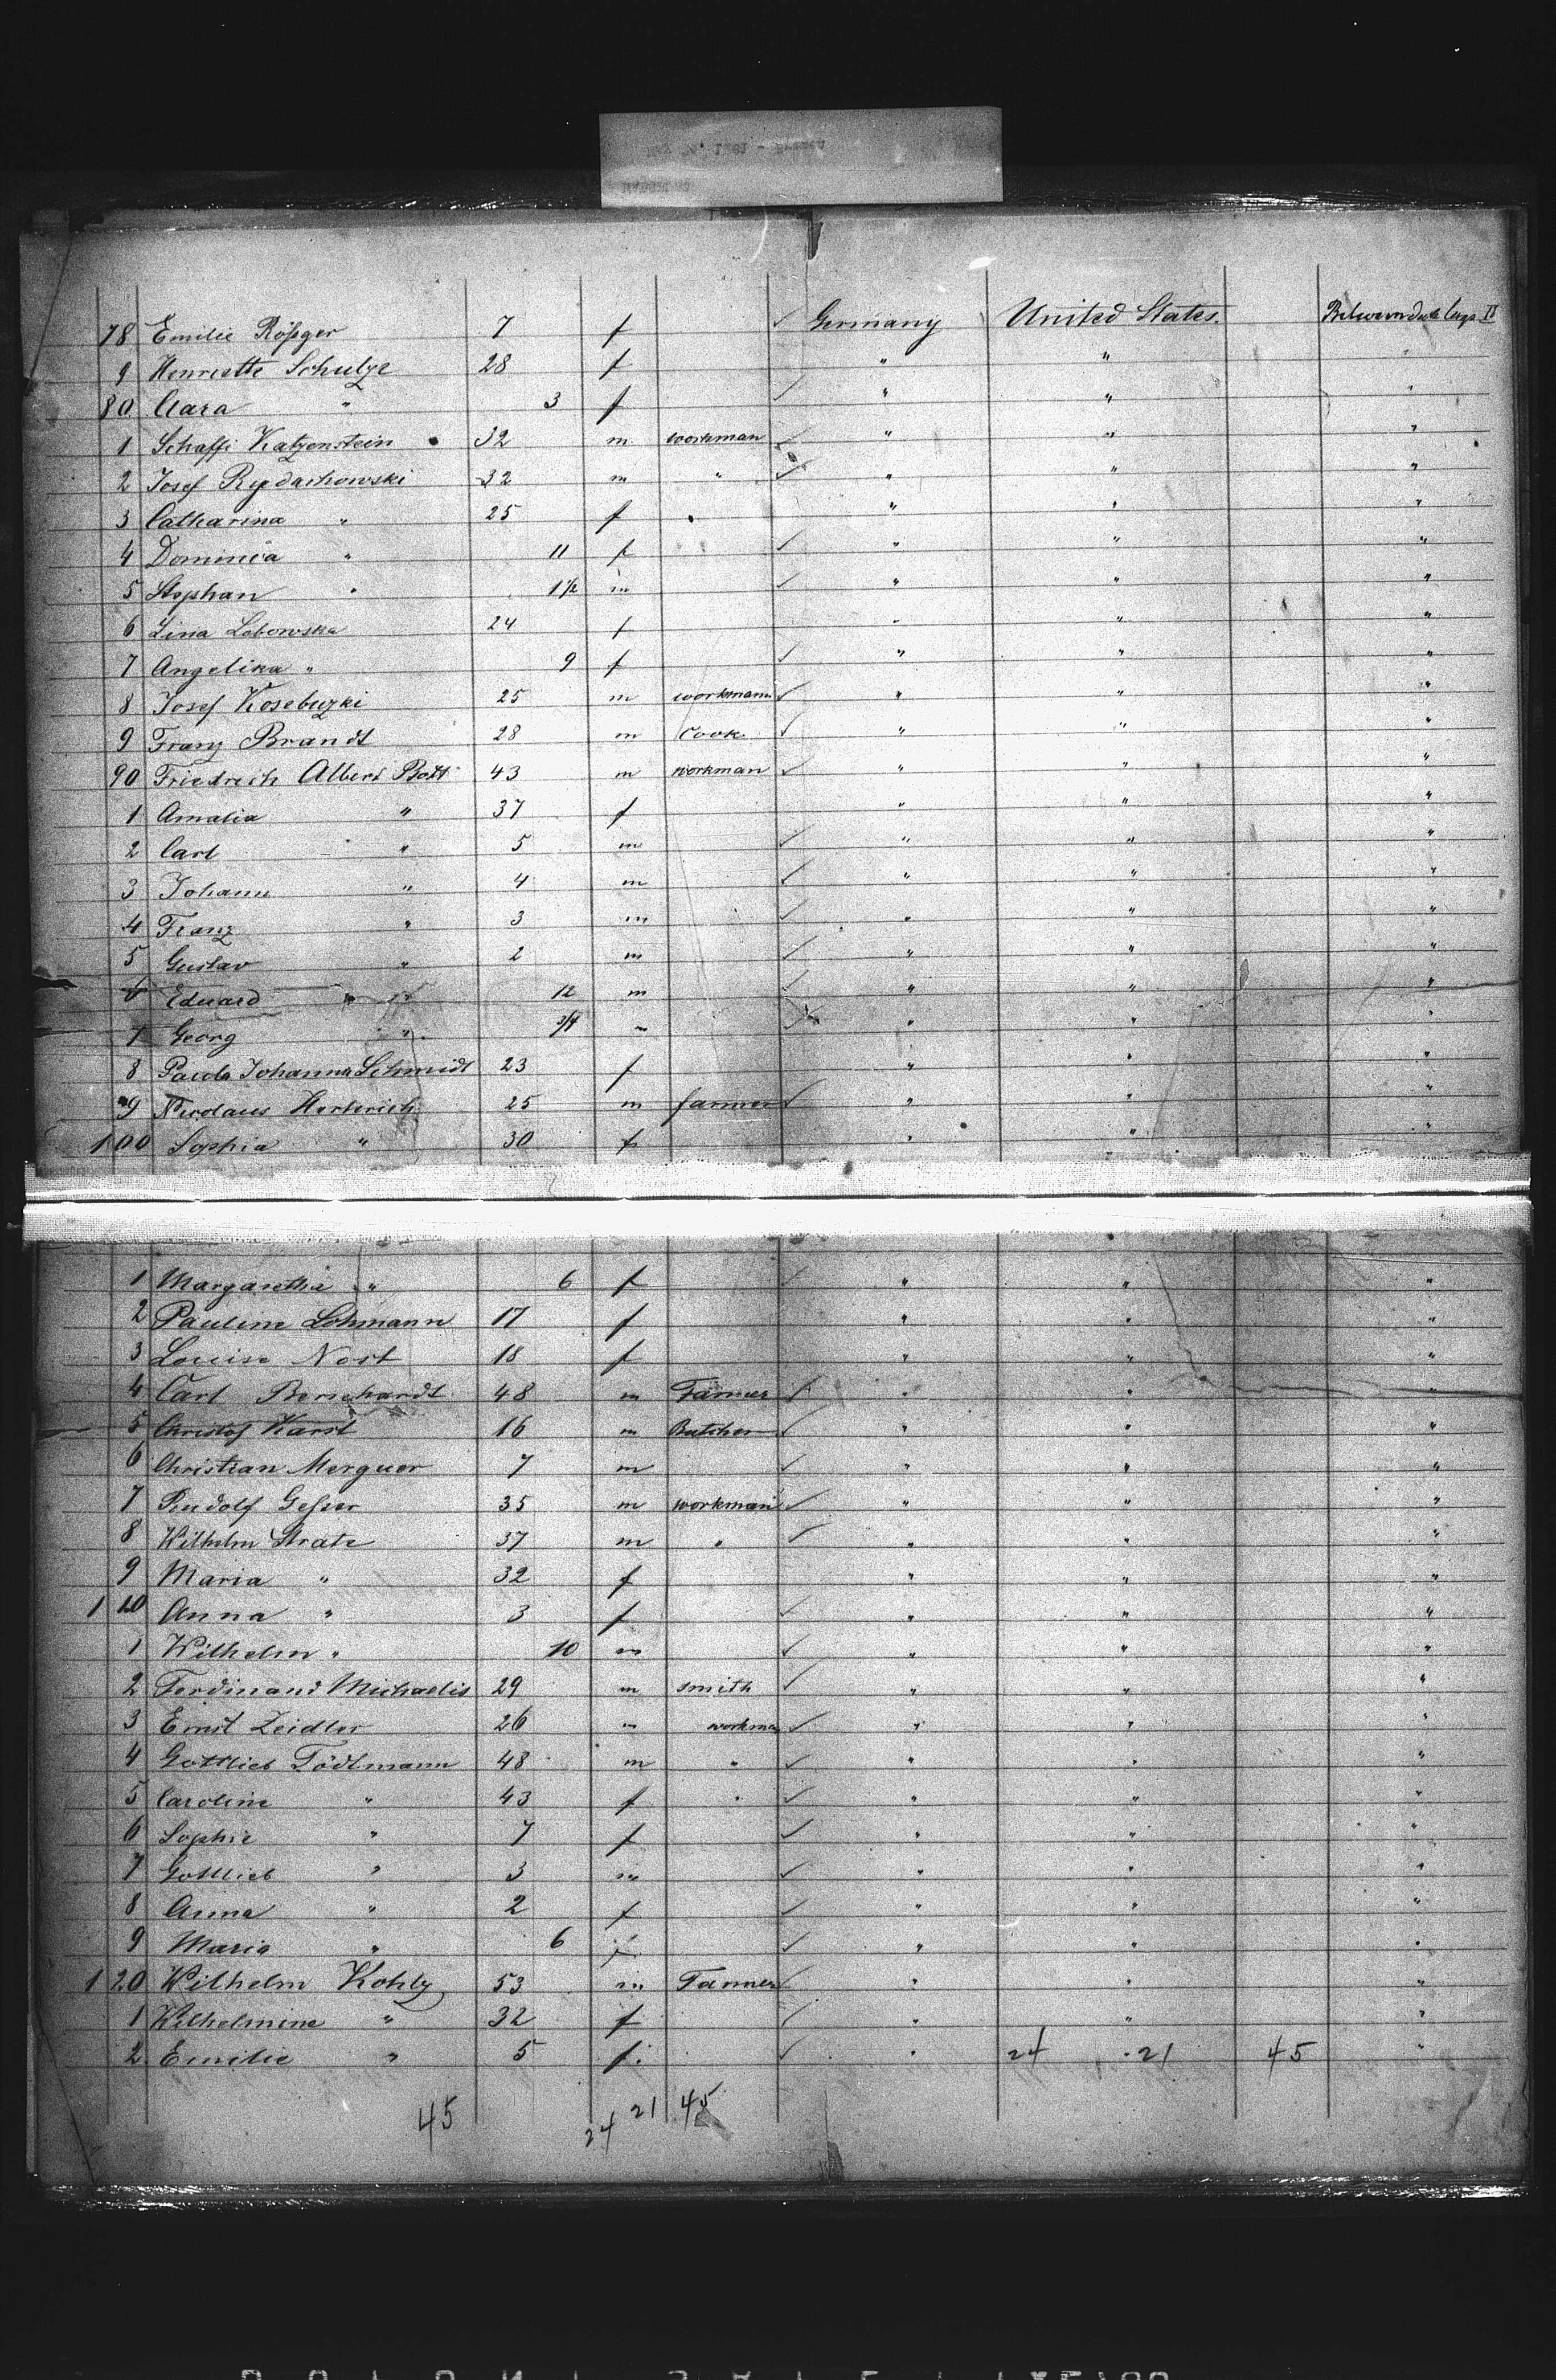 78 Emilie Rößger 7 f ✓ Germany United States. Between decks Comp. II
9 Henriette Schulze 28 f " " "
80 Clara " 3 f ✓ " " "
1 Schaffi Katzenstein 32 m workman ✓ " " "
2 Josef Rydachowski 32 m " ✓ " " "
3 Catharina " 25 f " " "
4 Dominica " 11 f ✓ " " "
5 Stephan " 1 1/2 m ✓ " " "
6 Lina Lebowska 24 f " " "
7 Angelika " 9 f ✓ " " "
8 Josef Kosebuzki 25 m workmann ✓ " " "
9 Franz Brandt 28 m Cook ✓ " " "
90 Friedrich Albert Bott 43 m workman ✓ " " "
1 Amalia " 37 f " " "
2 Carl " 5 m ✓ " " "
3 Johann " 4 m ✓ " " "
4 Franz " 3 m ✓ " " "
5 Gustav " 2 m ✓ " " "
6 Eduard " 12 m ✓ " " "
7 Georg " 3/4 " ✓ " " "
8 Paula Johanna Schmidt 23 f " " "
99 Nicolaus Herterich 25 m farmer ✓ " " "
100 Sophia " 30 f " " "
1 Margaretha " 6 f ✓ " " "
2 Pauline Lohmann 17 f " " "
3 Louise Nost 18 f " " "
4 Carl Borschardt 48 m Farmer ✓ " " "
5 Christof Karst 16 m Butcher ✓ " " "
6 Christian Merguer 7 m ✓ " " "
7 Rudolf Geßner 35 m workman ✓ " " "
8 Wilhelm Strate 37 m " ✓ " " "
9 Maria " 32 f " " "
110 Anna " 3 f ✓ " " "
1 Wilhelm " 10 m ✓ " " "
2 Ferdinand Michaelis 29 m smith ✓ " " "
3 Ernst Zeidler 26 m workman ✓ " " "
4 Gottlieb Tödtmann 48 m " ✓ " " "
5 Caroline " 43 f " ✓ " " "
6 Sophie " 7 f ✓ " " "
7 Gottlieb " 3 m ✓ " " "
8 Anna " 2 f ✓ " " "
9 Maria " 6 f ✓ " " "
120 Wilhelm Kohly 53 m Farmer ✓ " " "
1 Wilhelmine " 32 f ✓ " " "
2 Emilie " 5 f. ✓ " 24 21 45 "
45 24 21 45